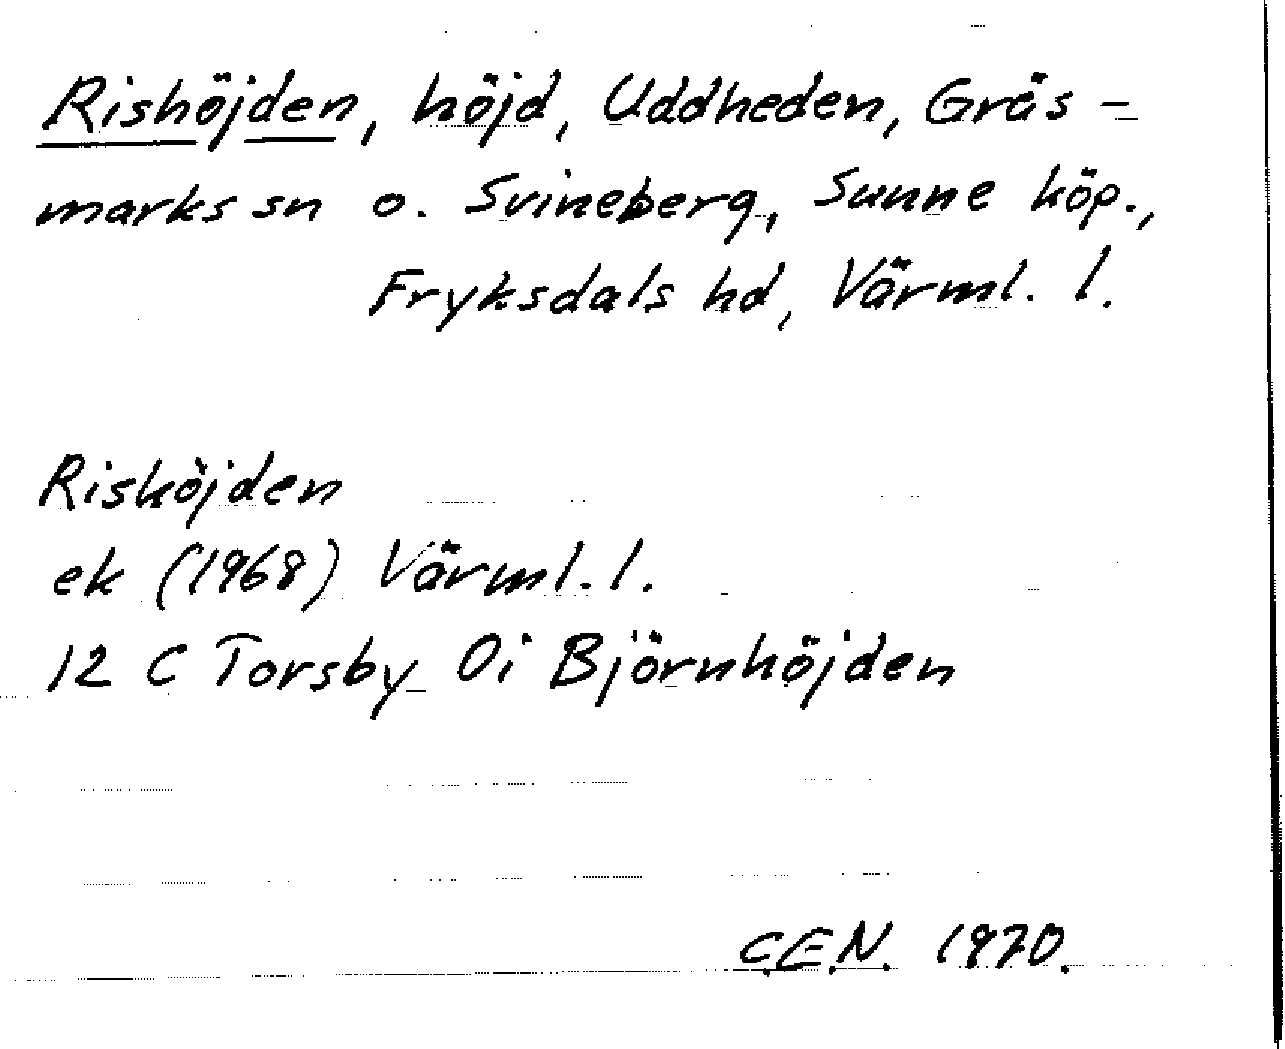 Rishöjden, höjd, Uddheden, Gräs-
marks sn o. Svineberg, Sunne köp.,
Fryksdals hd, Värml. l.
Rishöjden
ek (1968) Värml. l.
12 C Torsby 0i Björnhöjden
C.E.N. 1970.